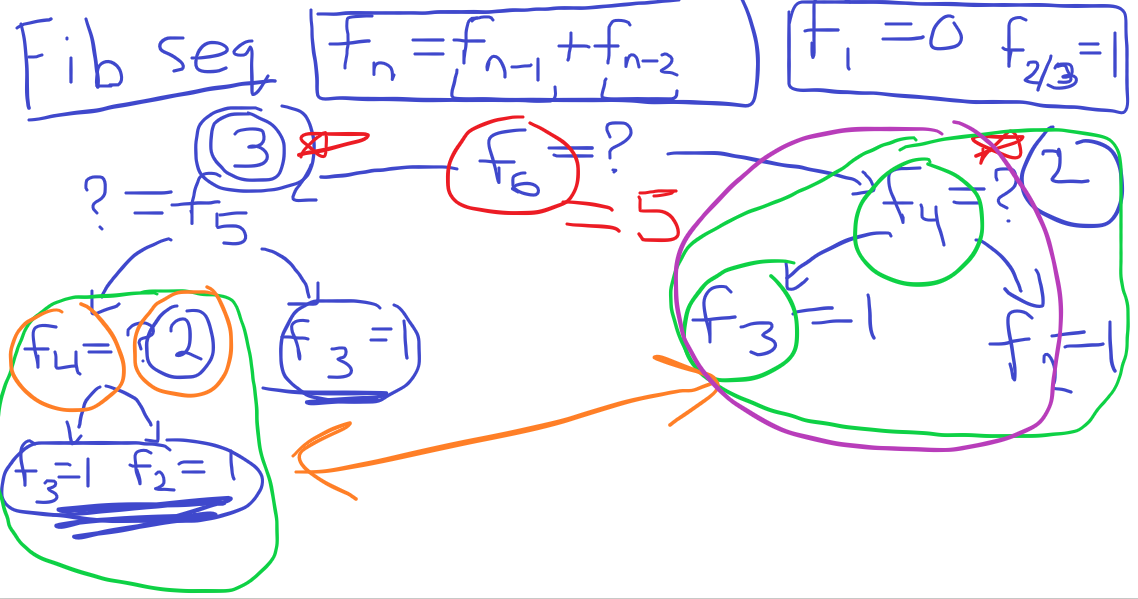 Fib seq
fn = fn-1 + fn-2
f1 = 0 f2/3 = 1
3
f6 = ?
= 5
2
? = f5
f4 = ?
f4 = ? 2
f3 = 1
f3 = 1
f2 = 1
f3 = 1 f2 = 1